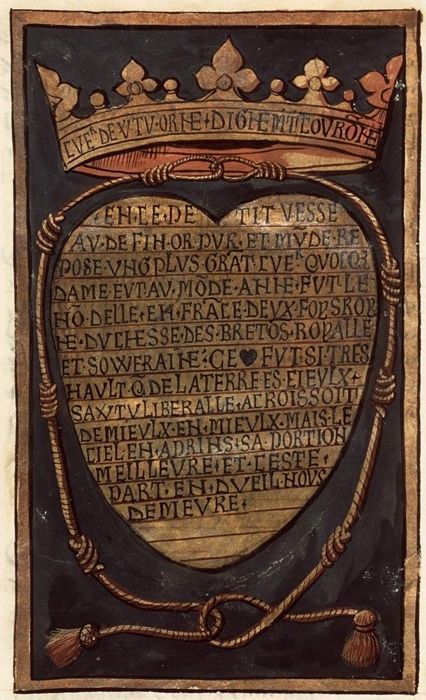 CVEᴿ DE VTV ORNE DIGNEMT COVRONE
EN CE PETIT VESSE
AV DE FIN OR PVR ET MVDE RE
POSE VNG PLVS GRAT CVEᴿ QVONQ
DAME EVT AV MODE ANNE FVT LE
NO DELLE EN FRACE DEVX FOYS ROY
NE DVCHESSE DES BRETOS ROYALLE
ET SOVVERAINE CE ♥ FVT SI TRES
HAVLT Q DE LA TERRE ES CIEVLX
SA VTV LIBERALLE ACROISSOIT
DE MIEVLX EN MIEVLX MAIS LE
CIEL EN A PRINS SA PORTION
MEILLEVRE ET CESTE
PART EN DVEIL NOVS
DEMEVRE